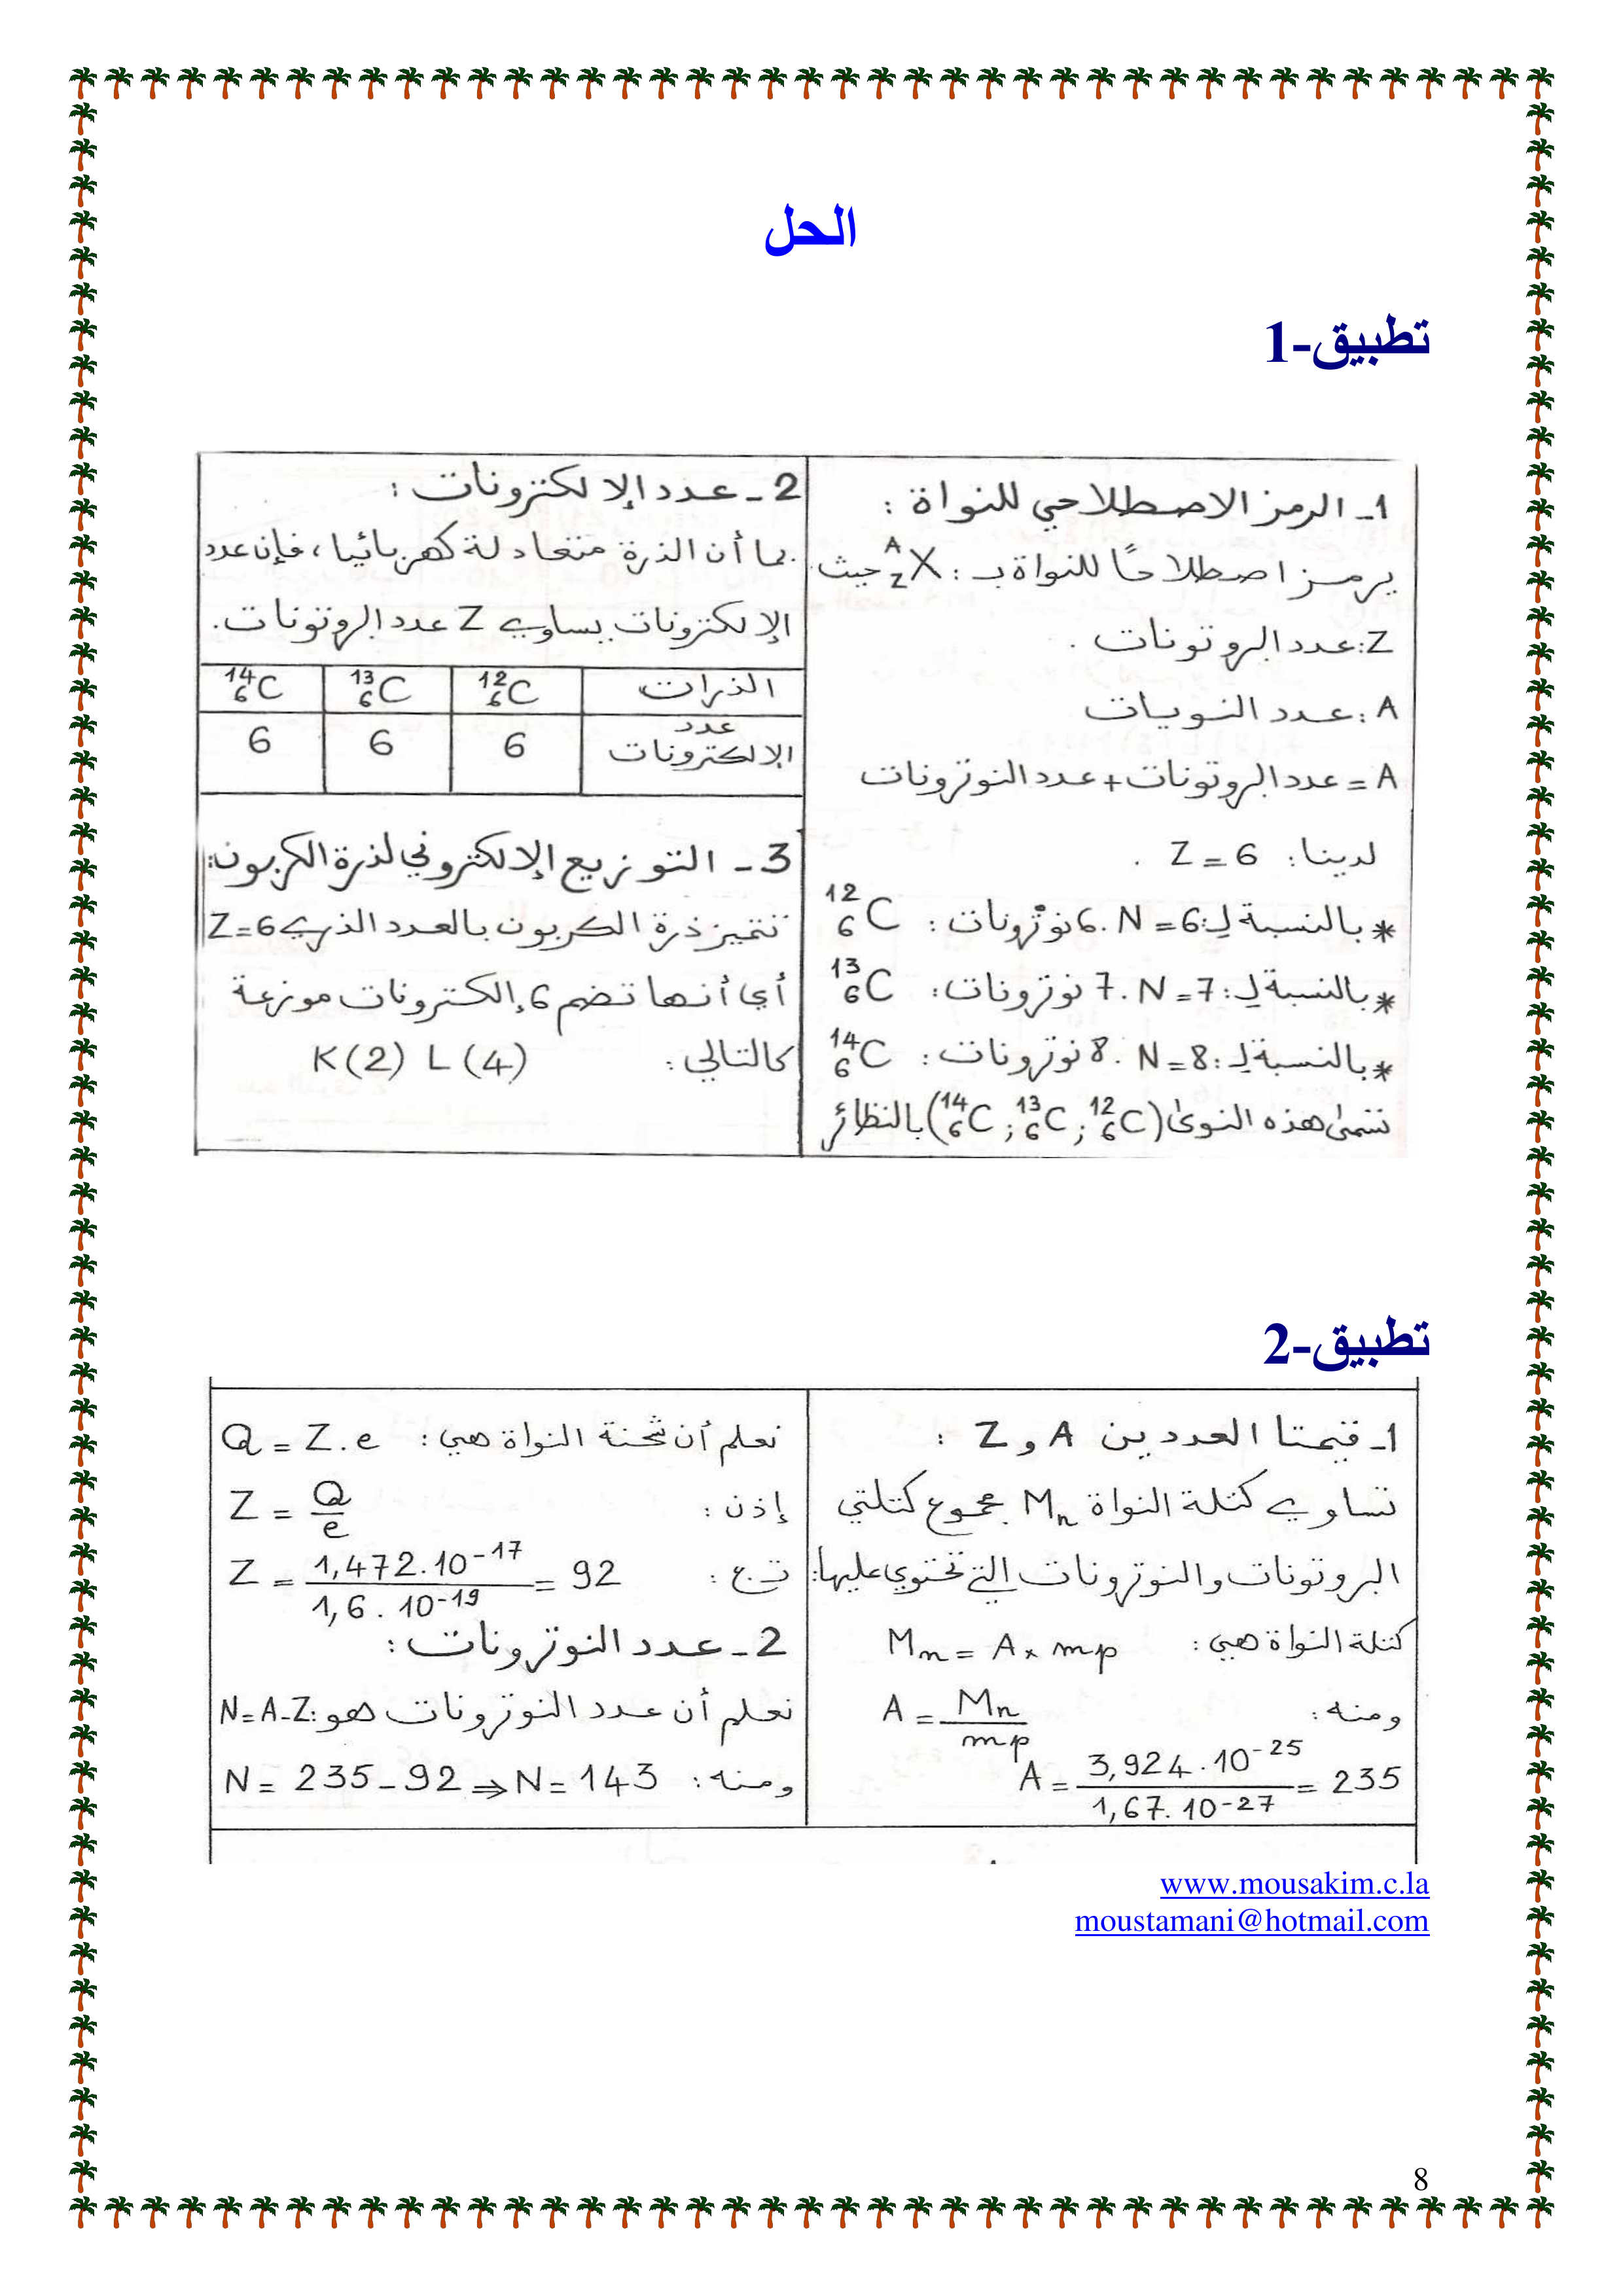 الحل
تطبيق-1
1- الرمز الاصطلاحي للنواة :
يرمز اصطلاحًا للنواة بـ : ᴬ_Z X حيث
Z: عدد البروتونات .
A : عدد النويات
A = عدد البروتونات + عدد النوترونات
لدينا : Z = 6 .
* بالنسبة لـ : N = 6 . 6 نوترونات : ¹²₆C
* بالنسبة لـ : N = 7 . 7 نوترونات : ¹³₆C
* بالنسبة لـ : N = 8 . 8 نوترونات : ¹⁴₆C
تسمى هذه النوى (¹²₆C ; ¹³₆C ; ¹⁴₆C) بالنظائر
2 - عدد الإلكترونات :
بما أن الذرة متعادلة كهربائيا ، فإن عدد
الإلكترونات يساوي Z عدد البروتونات .
الذرات ¹²₆C ¹³₆C ¹⁴₆C
عدد
الإلكترونات 6 6 6
3 - التوزيع الإلكتروني لذرة الكربون :
تتميز ذرة الكربون بالعدد الذري Z = 6
أي أنها تضم 6 إلكترونات موزعة
كالتالي : K (2) L (4)
تطبيق-2
1- قيمتا العددين A و Z :
تساوي كتلة النواة Mn مجموع كتلتي
البروتونات والنوترونات التي تحتوي عليها :
كتلة النواة هي : Mn = A × mp
ومنه : A = Mn / mp
A = 3,924 . 10⁻²⁵ / 1,67 . 10⁻²⁷ = 235
نعلم أن شحنة النواة هي : Q = Z . e
إذن : Z = Q / e
ت.ع : Z = 1,472 . 10⁻¹⁷ / 1,6 . 10⁻¹⁹ = 92
2 - عدد النوترونات :
نعلم أن عدد النوترونات هو : N = A - Z
ومنه : N = 235 - 92 ⇒ N = 143
www.mousakim.c.la
moustamani@hotmail.com
8